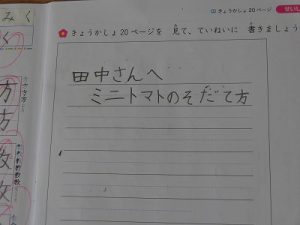 きょうかしょ20ページ
きょうかしょ20ページを 見て、ていねいに 書きましょう
田中さんへ
ミニトマトのそだて方
みく
く
方
方
教
教